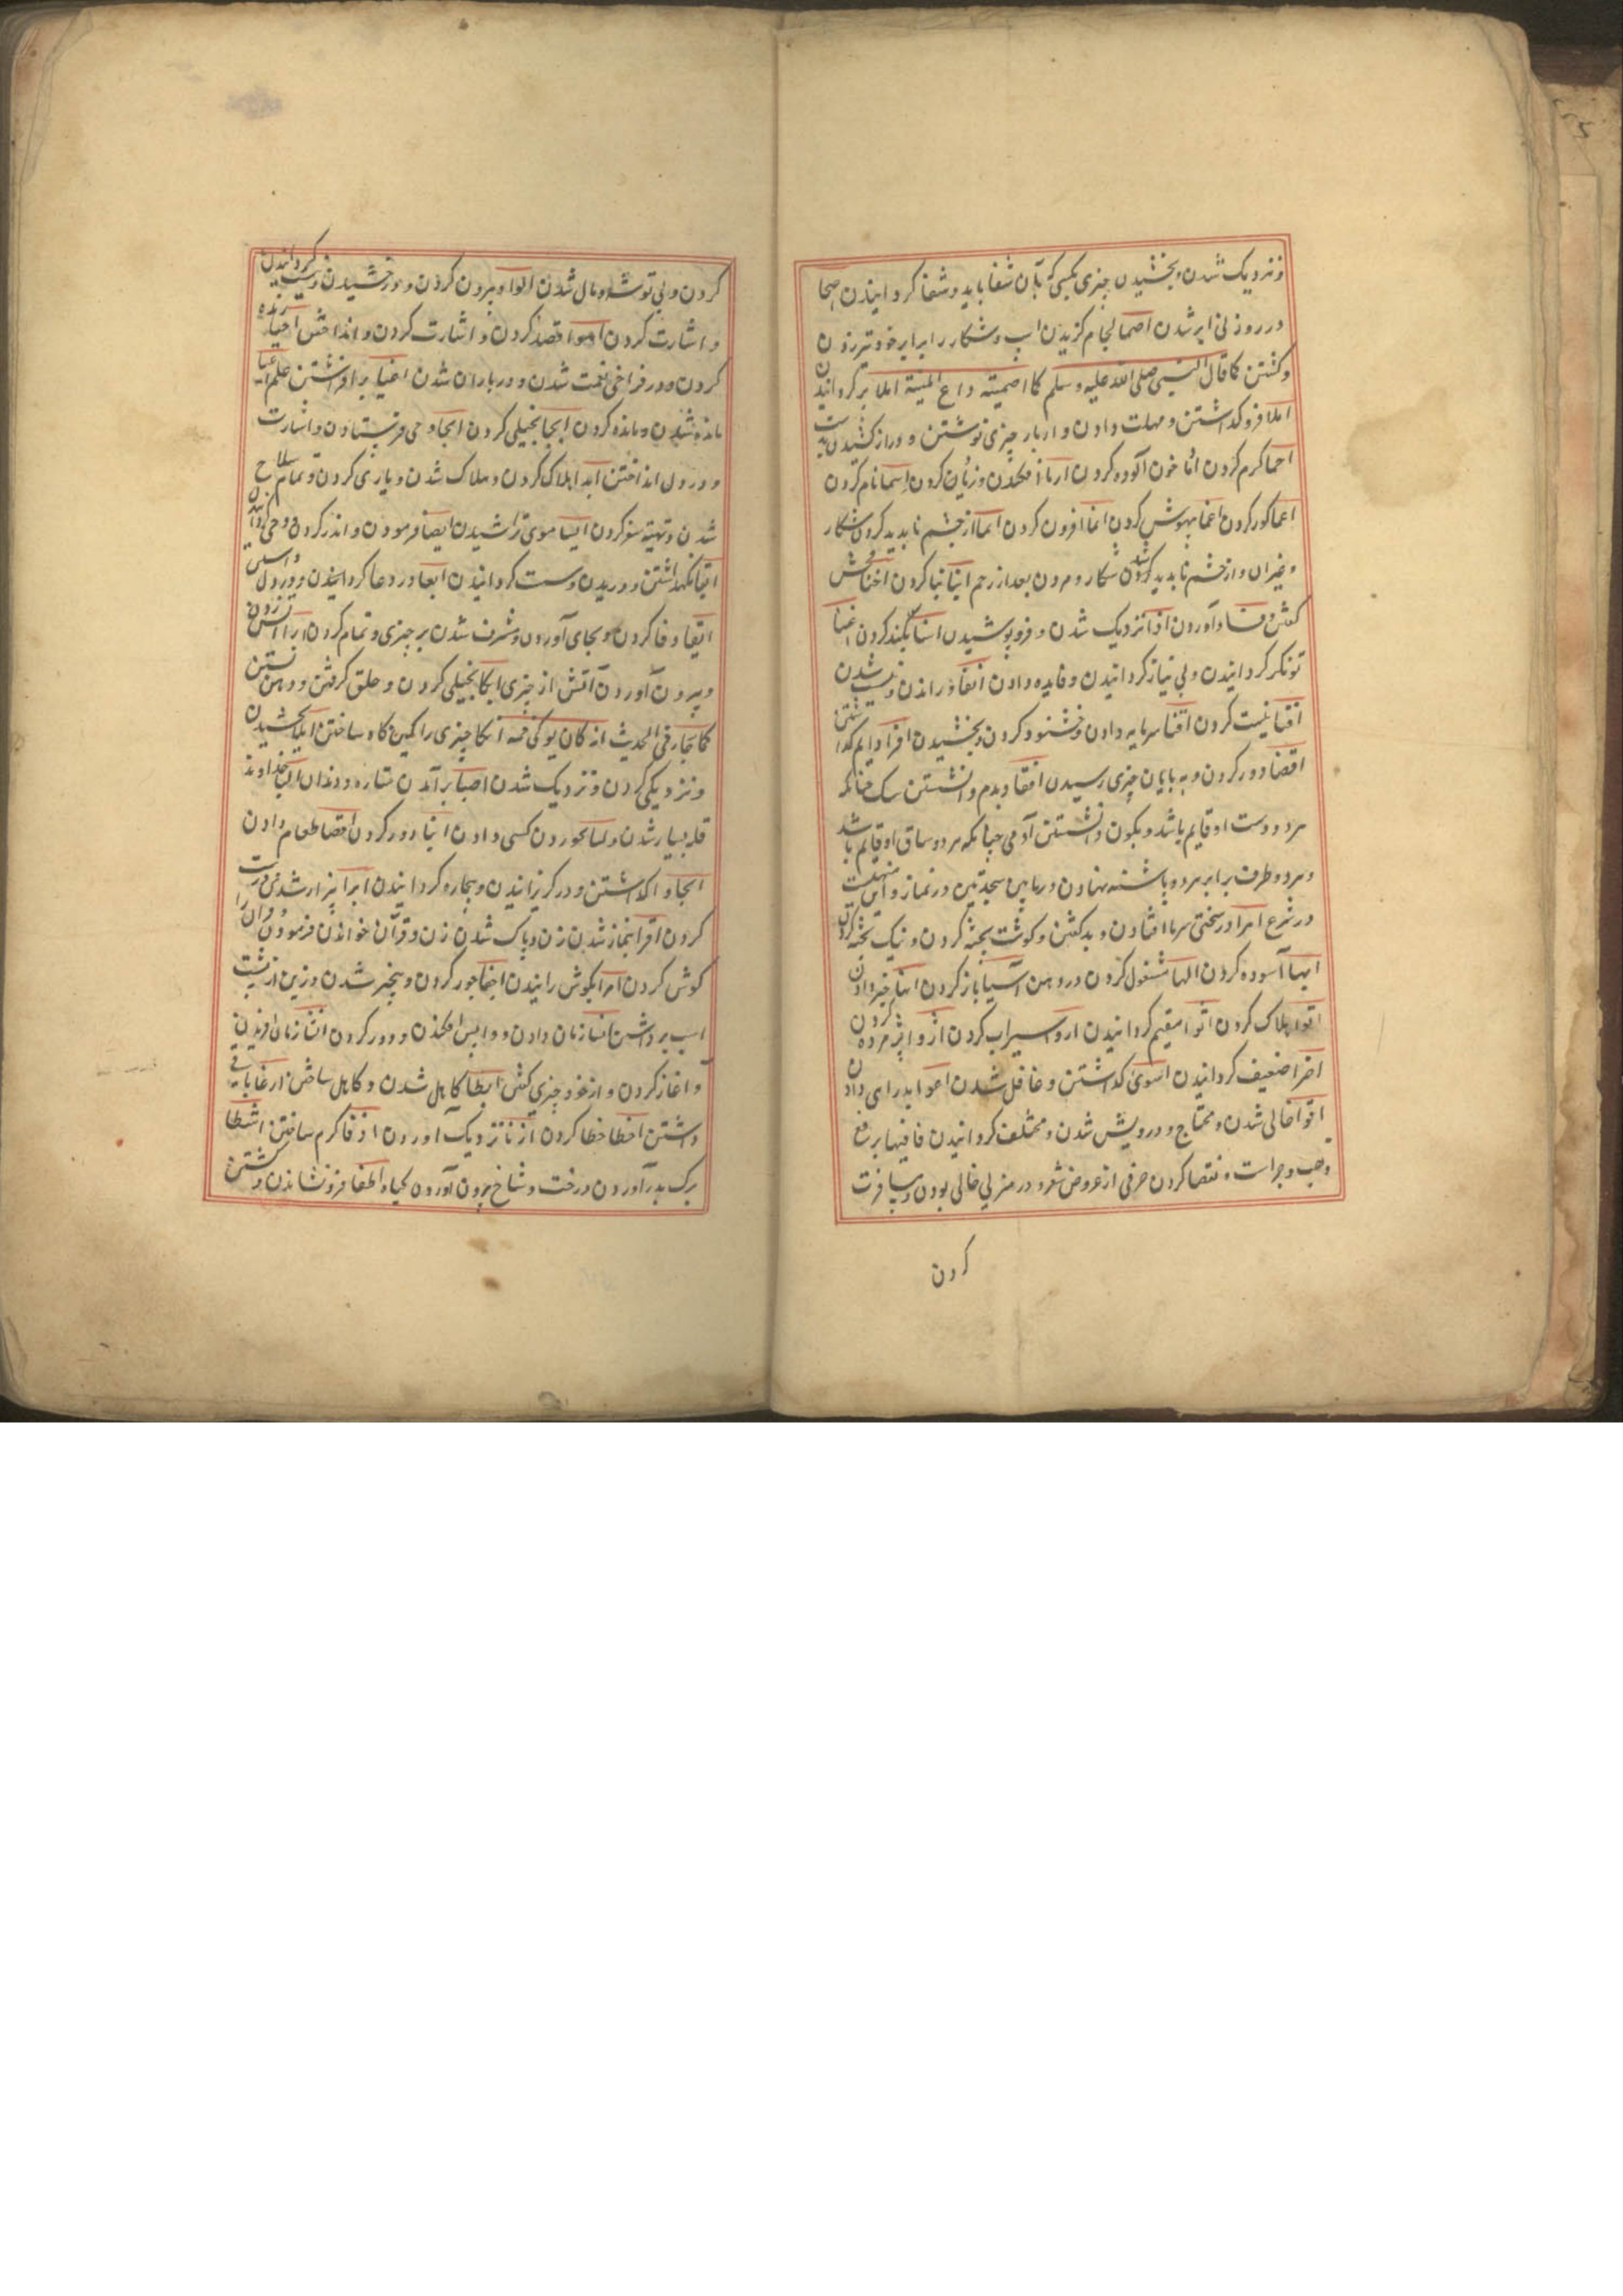 و نزدیک شدن و بخشیدن چیزی بکسی که بآن شفا یابد و شفا کردانیدن اصحا
در روز بی ابر شدن اصما لجام کزیدن اسپ و شکار را برابر خود تیر زدن
و کشتن کما قال النبی صلی الله علیه وسلم کما اصمیته ودع المیته املا پر کردانیدن
املا فرو کذاشتن و مهلت دادن و از یار چیزی نوشتن و دراز کشیدن مدت
احما کرم کردن ادما خون آلوده کردن ارما افکندن و زیان کردن اسما نام کردن
اعما کور کردن اغما بیهوش کردن انما افزون کردن انما از چشم نابدید کردن شکار
و غیران و از چشم نابدید کردن شکار و مردن بعد از زخم ابنا بنا کردن اخنا فحش
کفتن و فساد آوردن ادنا نزدیک شدن و فرو پوشیدن اسنا بلند کردن اغنا
تونکر کردانیدن و بی نیاز کردانیدن و فایده دادن
افنا نیست کردن اقنا سرمایه دادن و خشنود کردن و بخشیدن
اقصا دور کردن و به پایان چیزی رسیدن اقعا و بدم وا نشستن سک چنانکه
هر دو دست او قایم باشد و بکون وا نشستن آدمی چنانکه هر دو ساق او قایم باشد
و هر دو طرف برابر هر دو پاشنه نهادن در مابین سجدتین در نماز و این منهیست
در شرع اهرا در سختی سرما افتادن و بد کفتن و کوشت پخته کردن و نیک پخته کردن
ابها آسوده کردن الها مشغول کردن در دهن آسیا باز کردن انها خبر دادن
اتوا هلاک کردن اثوا مقیم کردانیدن اروا سیراب کردن اذوا پژمرده کردن
اخوا ضعیف کردانیدن اسوی کذاشتن و غافل شدن اغوا بد رای دادن
اقوا خالی شدن و محتاج و درویش شدن و مختلف کردانیدن قافیتها برفع
و نصب و جر است و نقصا کردن حرفی از عروض شعر و در منزلی خالی بودن و مسافرت
کردن
کردن و بی توشه و مال شدن الوا و بیرون کردن و درخشیدن
و اشارت کردن اهوا قصد کردن و اشارت کردن و انداختن احیا زنده
کردن و در فراخی نعمت شدن و در باران شدن اغیا برافراشتن علم اعیا
مانده شدن و مانده کردن ابخا بخیلی کردن ایحا وحی فرستادن و اشارت
و در دل انداختن ایدا هلاک کردن و هلاک شدن و یاری کردن و تمام سلاح
شدن و تهیه سفر کردن ایسا موی تراشیدن ایصا فرمودن و اندرز کردن و
ایعا نکهداشتن و دریدن و سست کردانیدن ایعا و در وعا کردانیدن و در دل
ایفا وفا کردن و بجای آوردن و مشرف شدن بر چیزی و تمام کردن ایرا آتش زدن
و بیرون آوردن آتش از چیزی ایکا بخیلی کردن و حلق کرفتن و دهن بستن
کما جاء فی الحدیث انه کان یوکی فمه اتکا چیزی را تکیه کاه ساختن ایلا بخشیدن
و نزدیکی کردن و نزدیک شدن اصبا برآمدن ستاره و دندان البا خداوند
قله بسیار شدن و لبا بخوردن کسی دادن انبا دور کردن اقضا طعام دادن
الجا وا کذاشتن و در کریزانیدن و بیچاره کردانیدن ابرا بیزار شدن
کردن اقرا بنماز شدن زن و پاک شدن زن و قرآن خواندن فرمودن
کوش کردن امرا بکوش رانیدن اجفا جور کردن و پنجر شدن و زین از پشت
اسپ برداشتن انسا زمان دادن و واپس افکندن و دور کردن انشا زمان آفریدن
و آغاز کردن و از خود چیزی کفتن ابطا کاهل شدن و کاهل ساختن
داشتن اخطا خطا کردن ازنا نزدیک آوردن ادفا کرم ساختن اشطا
برک بدر آوردن درخت و شاخ بیرون آوردن کیاه اطفا فرو نشاندن و کشتن